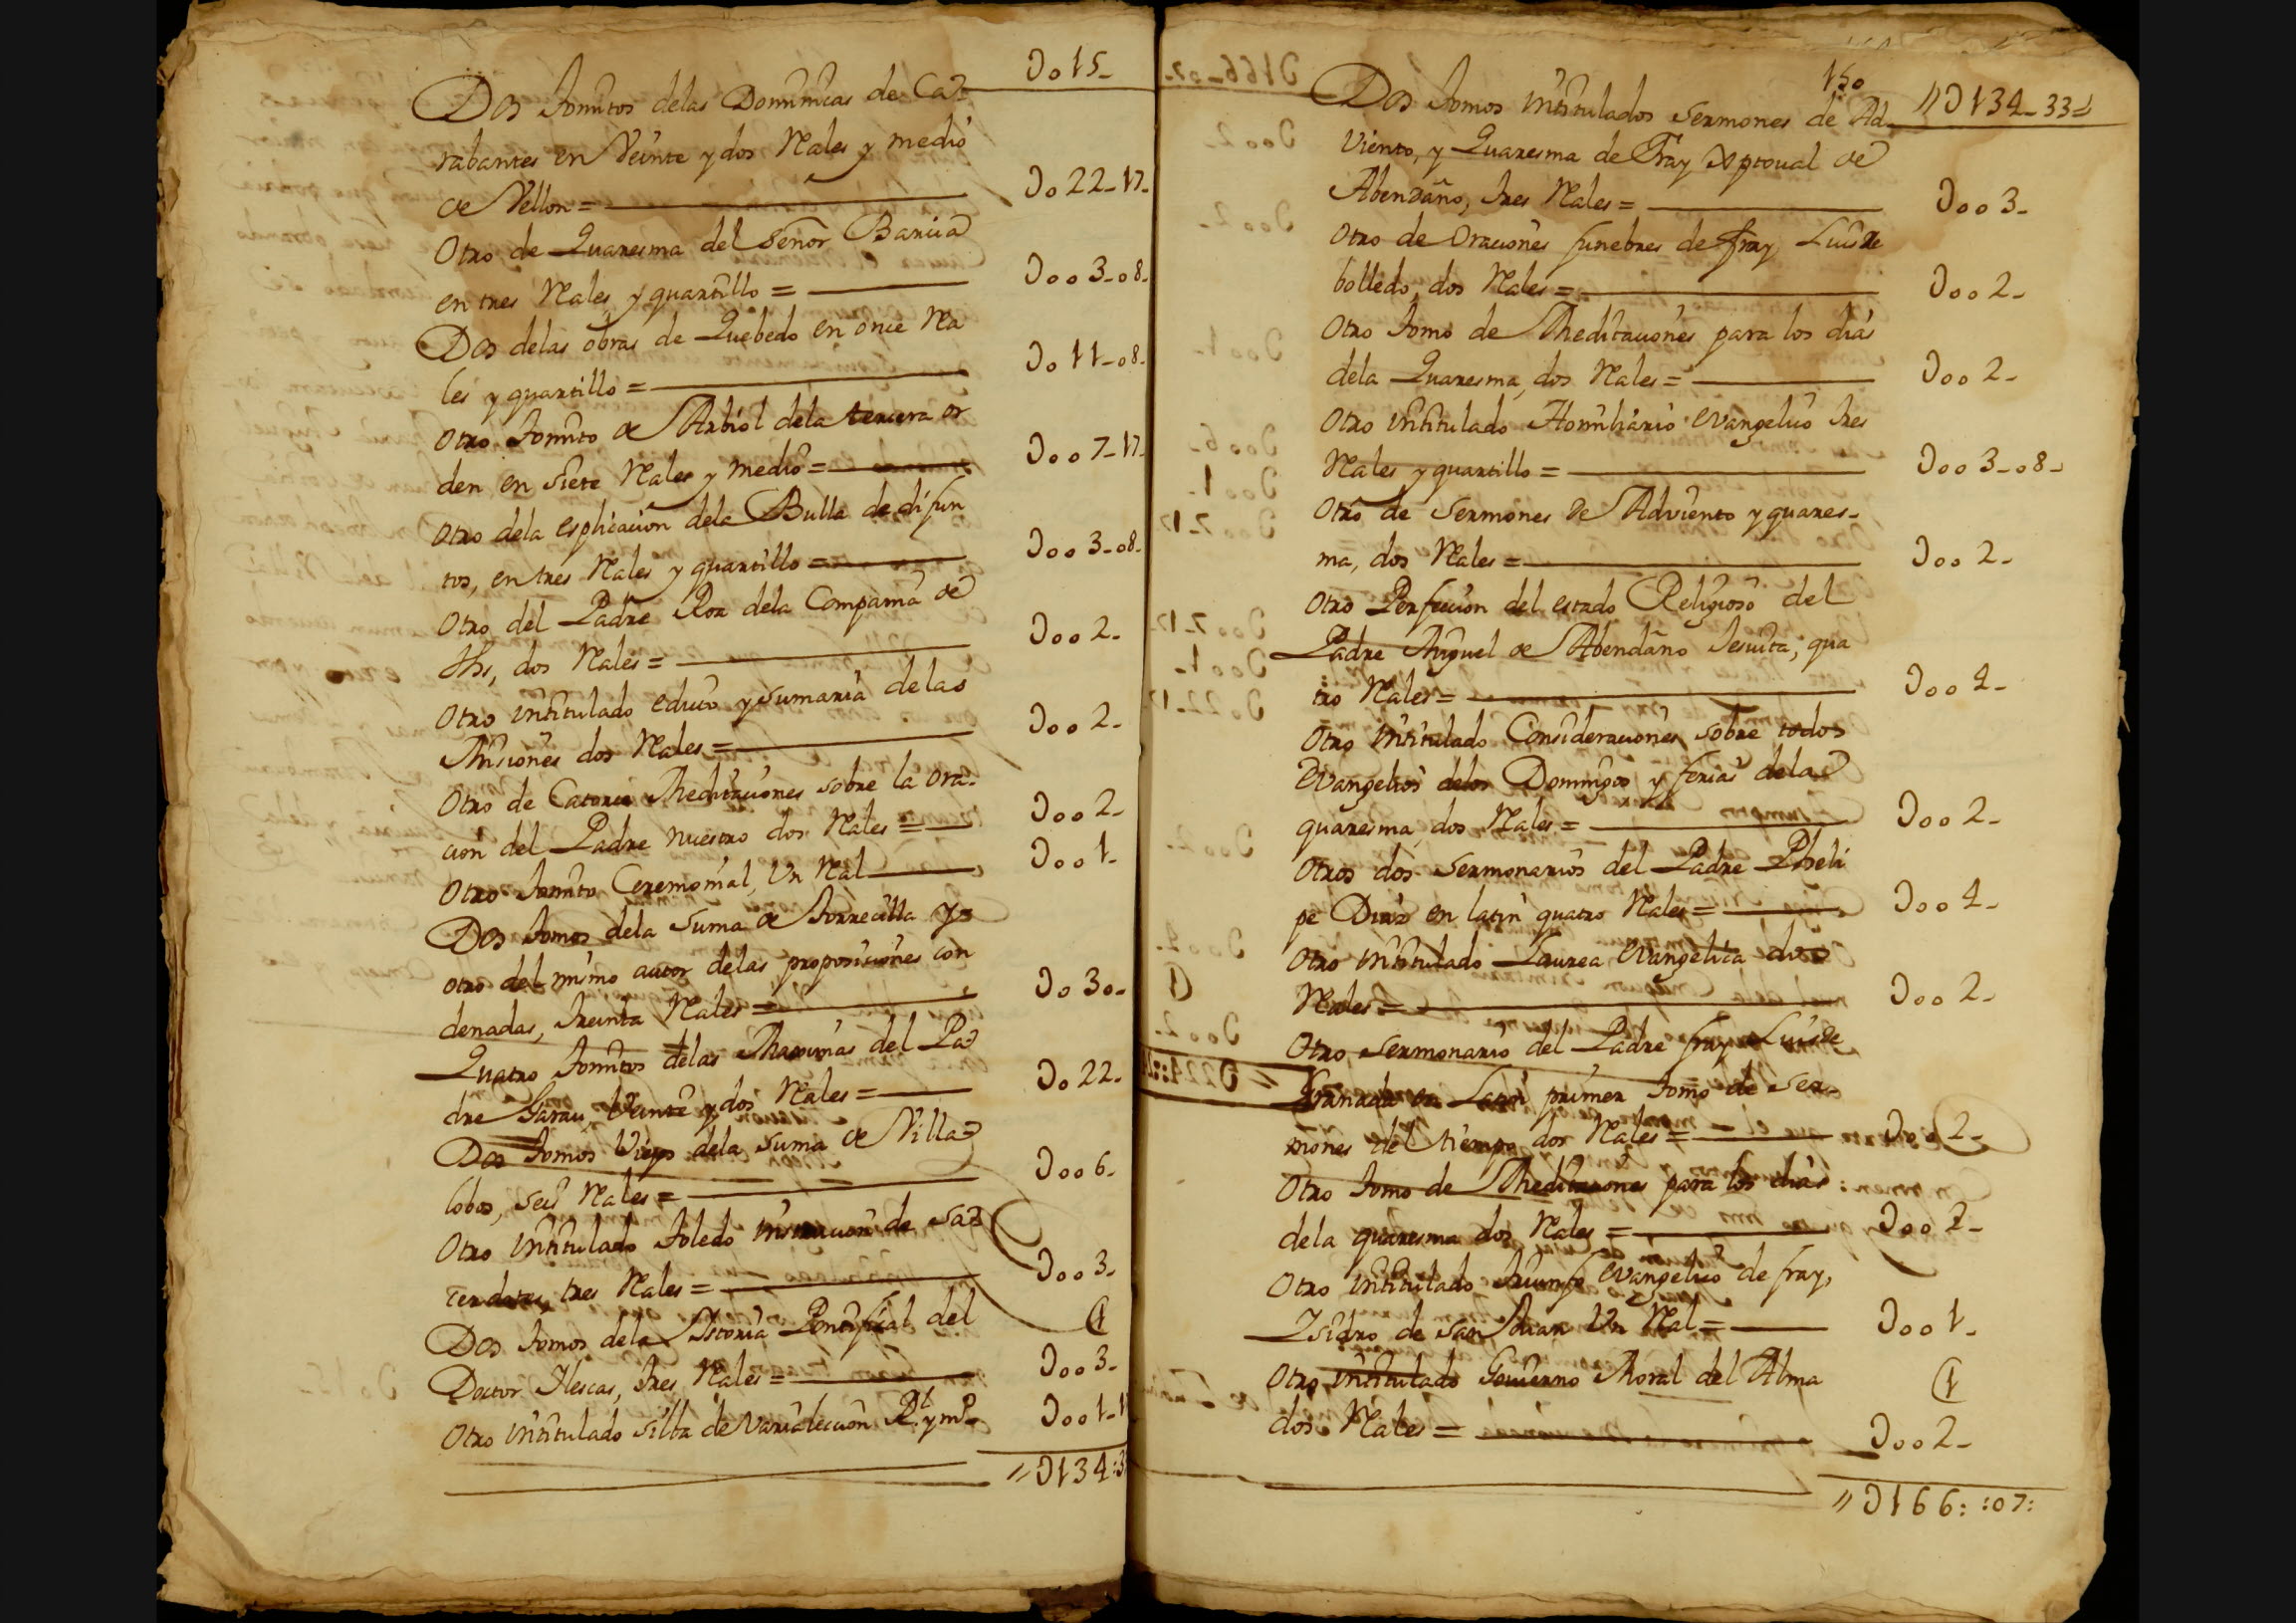 Do15-
Dos Tomitos delas Dominicas de Ca=
rabantes en Veinte y dos Rales y medio
de Vellon = Do22-17-
Otro de Quaresma del Señor Barcia
en tres Rales y quartillo = Doo3-08-
Dos delas obras de Quebedo en once Ra
les y quartillo = Do11-08-
Otro Tomito de Arbiol dela tercera or
den en siete Rales y medio = Doo7-17-
Otro dela esplicacion dela Bulla de difun
tos, en tres Rales y quartillo = Doo3-08-
Otro del Padre Roa dela Compañia de
Jhs, dos Rales = Doo2-
Otro intitulado edicto y sumaria delas
Misiones dos Rales = Doo2-
Otro de Catorce Meditaciones sobre la ora-
cion del Padre nuestro dos Rales = Doo2-
Otro Tomito Ceremonial, Un Ral Doo1-
Dos Tomos dela Suma de Torrecilla y=
otro del mismo autor delas proposiciones con
denadas, treinta Rales = Do30-
Quatro Tomitos delas Maximas del Pa=
dre Garau, Veinte y dos Rales = Do22-
Dos Tomos Viejos dela suma de Villa=
lobos, seis Rales = Doo6-
Otro intitulado Toledo instrucion de sa=
cerdotes, tres Rales = Doo3-
Dos Tomos dela Istoria Pontifical del
Doctor Illescas, tres Rales = Doo3-
Otro intitulado silba de Varia leccion Rl. y mo. Doo1-1
//D134:3
150
//D134-33
Dos Tomos intitulados Sermones de Ad-
viento, y Quaresma de Fray Xptoual de
Abendaño, tres Rales = Doo3-
Otro de Oraciones funebres de fray Luis Re
bolledo, dos Rales = Doo2-
Otro Tomo de Meditaciones para los dias
dela Quaresma, dos Rales = Doo2-
Otro intitulado Homiliario evangelico tres
Rales y quartillo = Doo3-08-
Otro de Sermones de Adviento y quares-
ma, dos Rales = Doo2-
Otro Perfecion del estado Religioso del
Padre Miguel de Abendaño Jesuita, qua
tro Rales = Doo4-
Otro intitulado Consideraciones sobre todos
Evangelios delos Domingos y ferias dela
quaresma, dos Rales = Doo2-
Otros dos Sermonarios del Padre Pheli
pe Diaz en latin quatro Rales = Doo4-
Otro intitulado Laurea Evangelica dos
Rales = Doo2-
Otro Sermonario del Padre fray Luis de
Granada en Latin primer Tomo de Ser-
mones del tiempo dos Rales = Doo2-
Otro Tomo de Meditaciones para los dias
dela quaresma dos Rales = Doo2-
Otro intitulado triunfo Evangelico de fray,
Isidro de San Juan Un Ral = Doo1-
Otro intitulado Govierno Moral del Alma
dos Rales = Doo2-
//D166::07: